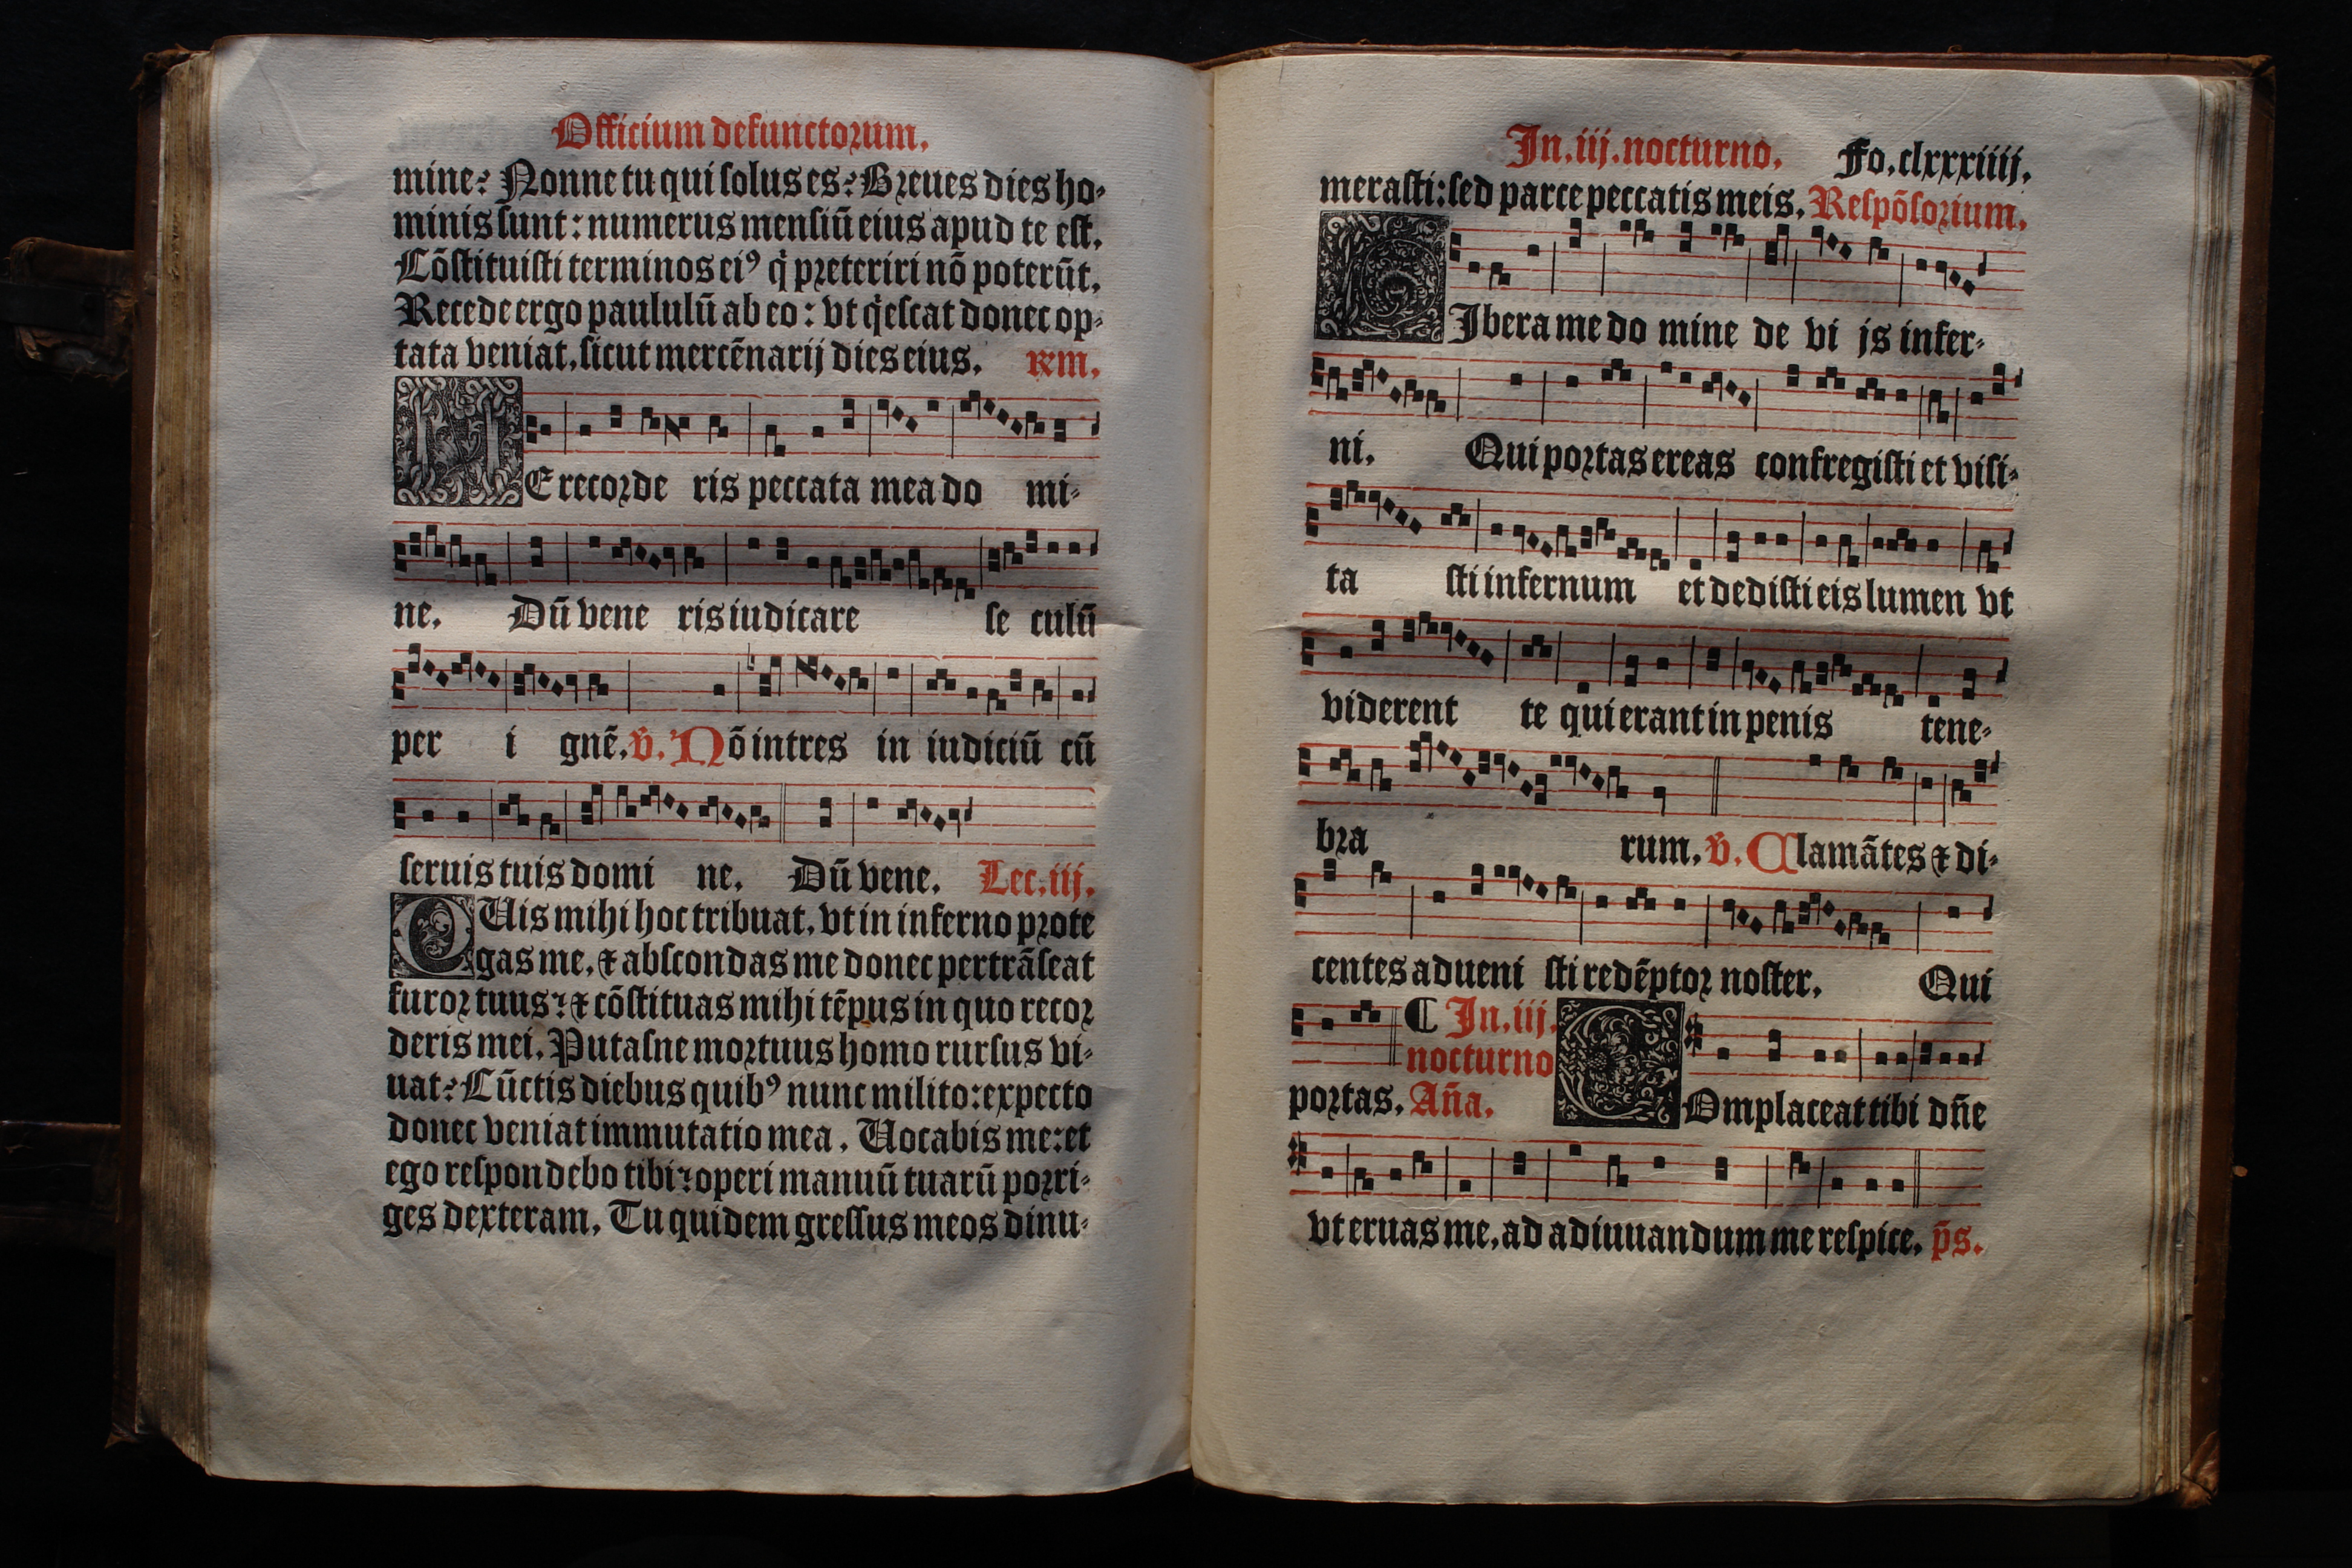 Officium defunctorum.
mine? Nonne tu qui solus es? Breues dies ho-
minis sunt: numerus mensiū eius apud te est.
Cōstituisti terminos eiꝰ q̇ preteriri nō poterūt.
Recede ergo paululū ab eo: vt q̇escat donec op-
tata veniat, sicut mercēnarij dies eius. rm.
NE recorde ris peccata mea do mi-
ne. Dū vene ris iudicare se culū
per i gnē. v̄. Nō intres in iudiciū cū
seruis tuis domi ne. Dū vene. Lec. iij.
QUis mihi hoc tribuat, vt in inferno prote
gas me, ⁊ abscondas me donec pertrāseat
furor tuus: ⁊ cōstituas mihi tēpus in quo recor
deris mei. Putasne mortuus homo rursus vi-
uat? Cūctis diebus quibꝰ nunc milito: expecto
donec veniat immutatio mea. Uocabis me: et
ego respondebo tibi: operi manuū tuarū porri-
ges dexteram. Tu quidem gressus meos dinu-
In. iij. nocturno. Fo. clxxxiiij.
merasti: sed parce peccatis meis. Respōsorium.
LIbera me do mine de vi js infer-
ni. Qui portas ereas confregisti et visi-
ta sti infernum et dedisti eis lumen vt
viderent te qui erant in penis tene-
bra rum. v̄. Clamātes ⁊ di-
centes adueni sti redēptor noster. Qui
portas. ¶ In. iij. nocturno Aña. COmplaceat tibi dñe
vt eruas me, ad adiuuandum me respice. p̄s.